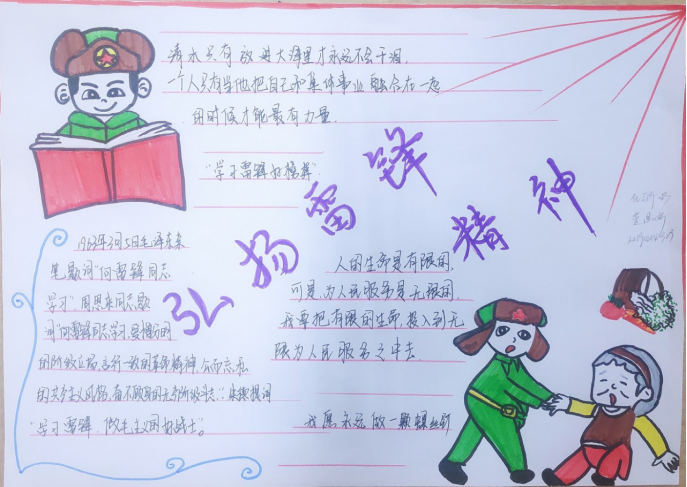 滴水只有放进大海里才永远不会干涸.
一个人只有当他把自己和集体事业融合在一起
的时候才能最有力量.
"学习雷锋好榜样".
弘扬雷锋精神
1963年3月5日毛泽东亲
笔题词"向雷锋同志
学习"周恩来同志题
词"向雷锋同志学习,爱憎分明
的阶级立场,言行一致的革命精神,公而忘私
的共产主义风格,奋不顾身的无产阶级斗志."
"学习雷锋,做毛主义的好战士"。
人的生命是有限的,
可是,为人民服务是无限的,
我要把有限的生命,投入到无
限为人民服务之中去.
我愿永远做一颗螺丝钉